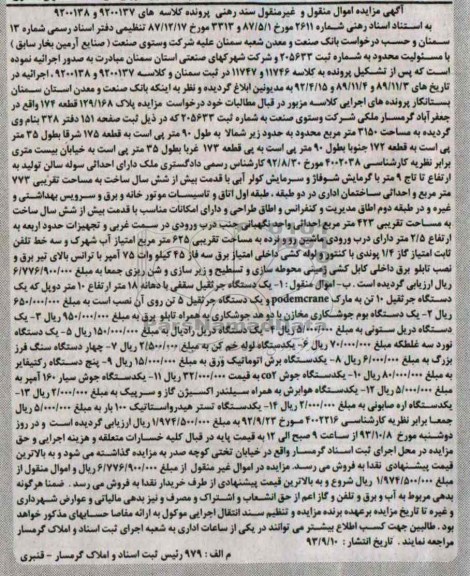 آگهی مزایده اموال منقول و غیرمنقول سند رهنی پرونده کلاسه های ۹۲۰۰۱۳۷ و ۹۲۰۰۱۳۸
به استناد اسناد رهنی شماره ۲۶۱۱ مورخ ۸۷/۵/۱ و ۳۳۱۳ مورخ ۸۷/۱۲/۱۷ تنظیمی دفتر اسناد رسمی شماره ۱۳
سمنان و حسب درخواست بانک صنعت و معدن شعبه سمنان علیه شرکت وستوی صنعت (صنایع آرمین بخار سابق)
با مسئولیت محدود به شماره ثبت ۲۰۵۶۳۳ و شرکت شهرکهای صنعتی استان سمنان مبادرت به صدور اجرائیه نموده
است که پس از تشکیل پرونده به کلاسه ۱۱۷۴۶ و ۱۱۷۴۷ در ثبت سمنان و کلاسه ۹۲۰۰۱۳۷ و ۹۲۰۰۱۳۸ ، اجرائیه در
تاریخ های ۸۹/۱۱/۳ و ۸۹/۱۱/۴ و ۹۲/۴/۱۵ به مدیونین ابلاغ گردیده و نظر به اینکه بانک صنعت و معدن استان سمنان
بستانکار پرونده های اجرایی کلاسه مزبور در قبال مطالبات خود درخواست مزایده پلاک ۱۲۹/۱۶۸ قطعه ۱۷۴ واقع در
جعفرآباد گرمسار ملکی شرکت وستوی صنعت به شماره ثبت ۲۰۵۶۳۳ که در ذیل ثبت صفحه ۱۵۱ دفتر ۳۲۸ بنام وی
گردیده به مساحت ۳۱۵۰ متر مربع محدود به حدود زیر شمالا به طول ۹۰ متر پی است به قطعه ۱۷۵ شرقا بطول ۳۵ متر
پی است به قطعه ۱۷۲ جنوبا بطول ۹۰ متر پی است به پی قطعه ۱۷۳ غربا بطول ۳۵ متر پی است به خیابان بیست متری
برابر نظریه کارشناسی ۴۰۰۲۰۳۸ مورخ ۹۲/۸/۲۰ کارشناس رسمی دادگستری ملک دارای احداثی سوله سالن تولید به
ارتفاع تا تاج ۹ متر با گرمایش شوفاژ و سرمایش کولر آبی با قدمت بیش از شش سال ساخت به مساحت تقریبی ۷۷۳
متر مربع و احداثی ساختمان اداری در دو طبقه ، طبقه اول اتاق و تاسیسات موتور خانه و برق و سرویس بهداشتی و
غیره و در طبقه دوم اطاق مدیریت و کنفرانس و اطاق طراحی و دارای امکانات مناسب با قدمت بیش از شش سال ساخت
به مساحت تقریبی ۴۲۳ متر مربع احداثی واحد نگهبانی جنب درب ورودی در سمت غربی و تجهیزات حدود اربعه به
ارتفاع ۲/۵ متر دارای درب ورودی ماشین رو و نرده به مساحت تقریبی ۶۲۵ متر مربع امتیاز آب شهرک و سه خط تلفن
ثابت امتیاز گاز ۱/۴ پوندی با کنتور و لوله کشی داخلی امتیاز برق سه فاز ۴۵ کیلو وات ۷۵ آمپر با ترانس بالای تیر برق و
نصب تابلو برق داخلی کابل کشی زمینی محوطه سازی و تسطیح و زیر سازی و شن ریزی جمعا به مبلغ ۶/۷۷۶/۹۰۰/۰۰۰
ریال ارزیابی گردیده است . ب- اموال منقول : ۱- یک دستگاه جرثقیل سقفی با دهانه ۱۸ متر ارتفاع ۱۰ متر دوپل که یک
دستگاه جرثقیل ۱۰ تن به مارک podemcrane و یک دستگاه جرثقیل ۵ تن روی آن نصب است به مبلغ ۶۵۰/۰۰۰/۰۰۰
ریال ۲- یک دستگاه بوم جوشکاری مخازن با دو هد جوشکاری به همراه تابلو برق به مبلغ ۹۵۰/۰۰۰/۰۰۰ ریال ۳- یک
دستگاه دریل ستونی به مبلغ ۵/۰۰۰/۰۰۰ ریال ۴- یک دستگاه دریل رادیال به مبلغ ۱۵۰/۰۰۰/۰۰۰ ریال ۵- یک دستگاه
نورد سه غلطکه مبلغ ۷۰/۰۰۰/۰۰۰ ریال ۶- یکدستگاه لوله خم کن به مبلغ ۲/۵۰۰/۰۰۰ ریال ۷- چهار دستگاه سنگ فرز
بزرگ به مبلغ ۶/۰۰۰/۰۰۰ ریال ۸- یکدستگاه برش اتوماتیک ورق به مبلغ ۱۵/۰۰۰/۰۰۰ ریال ۹- پنج دستگاه رکتیفایر
به مبلغ ۸۰/۰۰۰/۰۰۰ ریال ۱۰- یکدستگاه جوش co2 به قیمت ۳۲/۰۰۰/۰۰۰ ریال ۱۱- یکدستگاه جوش سیار ۱۶۰ آمپر به
مبلغ ۵/۰۰۰/۰۰۰ ریال ۱۲- یکدستگاه هوابرش به همراه سیلندر اکسیژن گاز و سرپیک به مبلغ ۲/۰۰۰/۰۰۰ ریال ۱۳-
یکدستگاه اره صابونی به مبلغ ۲/۰۰۰/۰۰۰ ریال ۱۴- یکدستگاه تستر هیدرواستاتیک ۱۰۰ بار به مبلغ ۵/۰۰۰/۰۰۰ ریال
جمعا برابر نظریه کارشناسی ۴۰۰۲۲۱۶ مورخ ۹۲/۹/۲۳ به مبلغ ۱/۹۷۴/۵۰۰/۰۰۰ ریال ارزیابی گردیده است و در روز
دوشنبه مورخ ۹۳/۱۰/۸ از ساعت ۹ صبح الی ۱۲ به قیمت پایه در قبال کلیه خسارات متعلقه و هزینه اجرایی و حق
مزایده در محل اجرای ثبت اسناد گرمسار واقع در خیابان تختی کوچه صدر به مزایده گذاشته می شود و به بالاترین
قیمت پیشنهادی نقدا به فروش می رسد. مزایده در اموال غیر منقول از مبلغ ۶/۷۷۶/۹۰۰/۰۰۰ ریال و اموال منقول از
۱/۹۷۴/۵۰۰/۰۰۰ ریال شروع و به بالاترین قیمت پیشنهادی از طرف خریدار نقدا به فروش می رسد . ضمنا هرگونه
بدهی مربوط به آب و برق و تلفن و گاز اعم از حق انشعاب و اشتراک و مصرف و نیز بدهی مالیاتی و عوارض شهرداری
و غیره تا تاریخ مزایده برعهده برنده مزایده و تنظیم سند انتقال اجرایی موکول به ارائه مفاصا حسابهای مذکور خواهد
بود . طالبین جهت کسب اطلاع بیشتر می توانند در یکی از ساعات اداری به شعبه اجرای ثبت اسناد و املاک گرمسار
مراجعه نمایند . تاریخ انتشار : ۹۳/۹/۱۰
م الف : ۹۷۹ رئیس ثبت اسناد و املاک گرمسار - قنبری